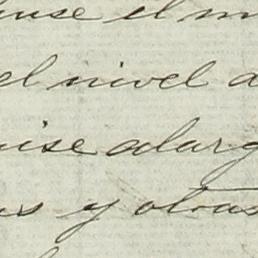 el m
el nivel a
ise alarg
s y otras